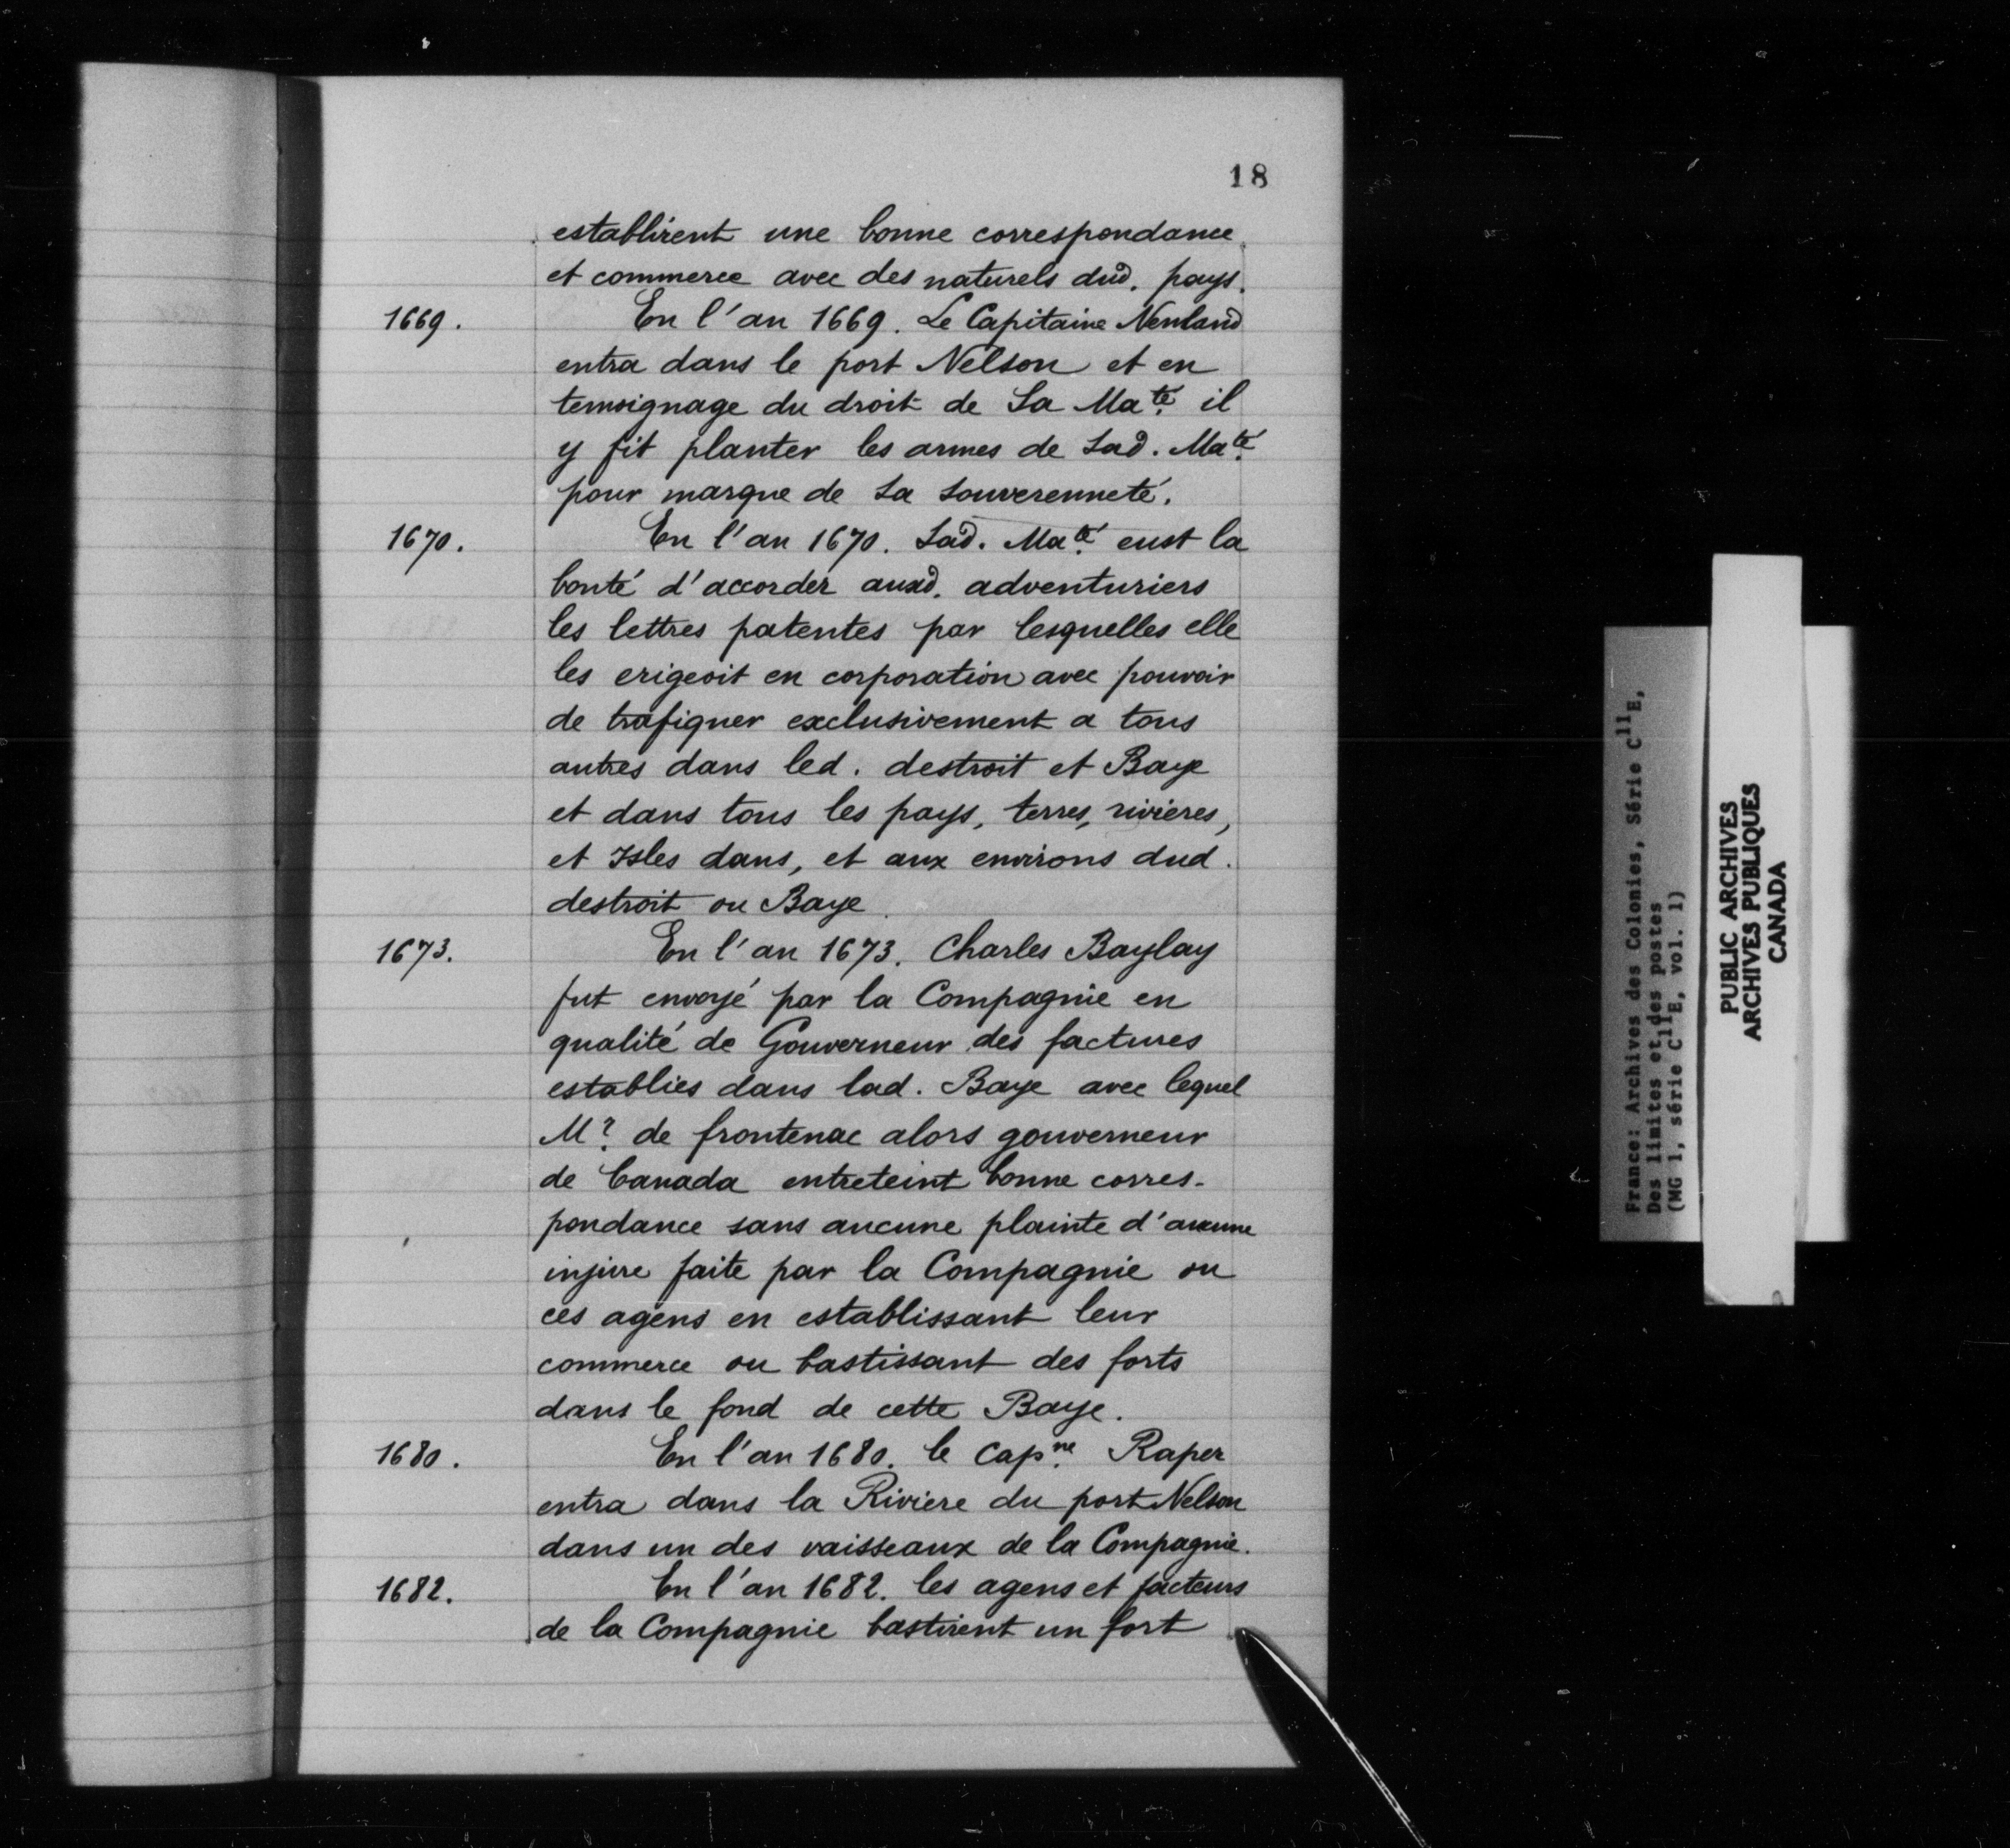 18
establirent une bonne correspondance
et commerce avec des naturels dud. pays.
1669. En l'an 1669. Le Capitaine Neuland
entra dans le port Nelson et en
temoignage du droit de Sa Maté il
y fit planter les armes de Sad. Maté
pour marque de Sa Souverenneté.
1670. En l'an 1670. Sad. Maté eust la
bonté d'accorder auxd. adventuriers
les lettres patentes par lesquelles elle
les erigeoit en corporation avec pouvoir
de trafiquer exclusivement a tous
autres dans led. destroit et Baye
et dans tous les pays, terres, rivieres,
et Isles dans, et aux environs dud.
destroit ou Baye.
1673. En l'an 1673. Charles Baylay
fut envoyé par la Compagnie en
qualité de Gouverneur des factures
establies dans lad. Baye avec lequel
Mr. de frontenac alors gouverneur
de Canada entreteint bonne corres-
pondance sans aucune plainte d'aucune
injure faite par la Compagnie ou
ces agens en establissant leur
commerce ou bastissant des forts
dans le fond de cette Baye.
1680. En l'an 1680. le Capne. Raper
entra dans la Riviere du port Nelson
dans un des vaisseaux de la Compagnie.
1682. En l'an 1682. les agens et facteurs
de la Compagnie bastirent un fort
France: Archives des Colonies, Série C11E,
Des limites et des postes
(MG 1, série C11E, vol. 1)
PUBLIC ARCHIVES
ARCHIVES PUBLIQUES
CANADA